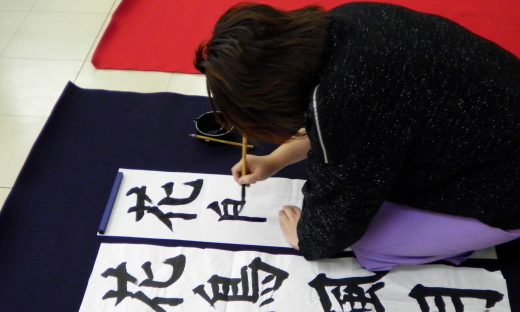 花
花鳥風月